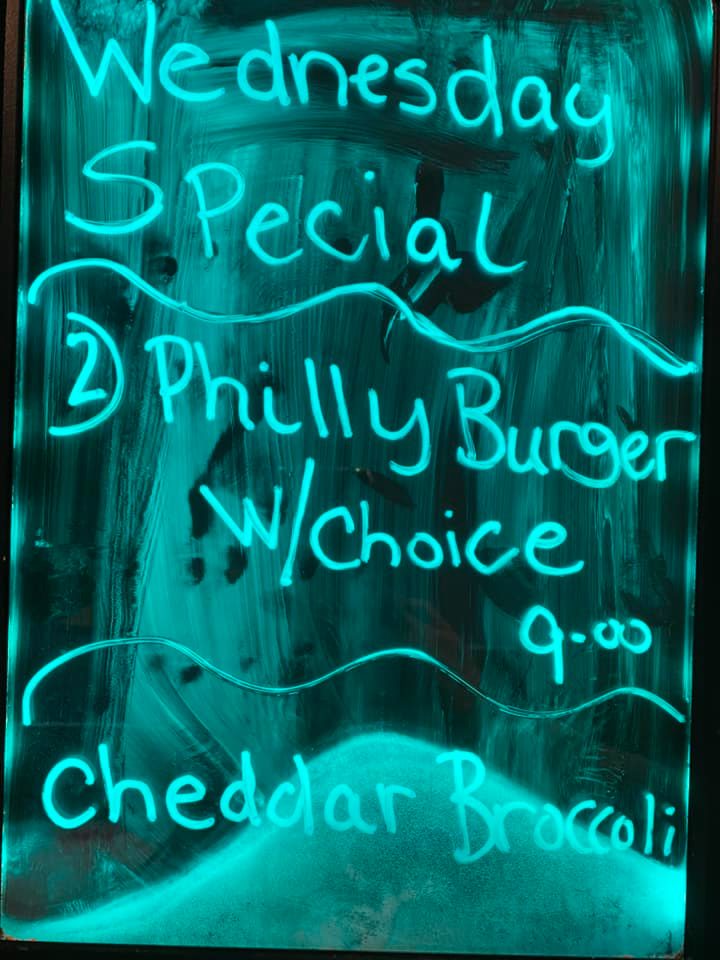 Wednesday
Special
2) Philly Burger
W/Choice
9.00
Cheddar Broccoli